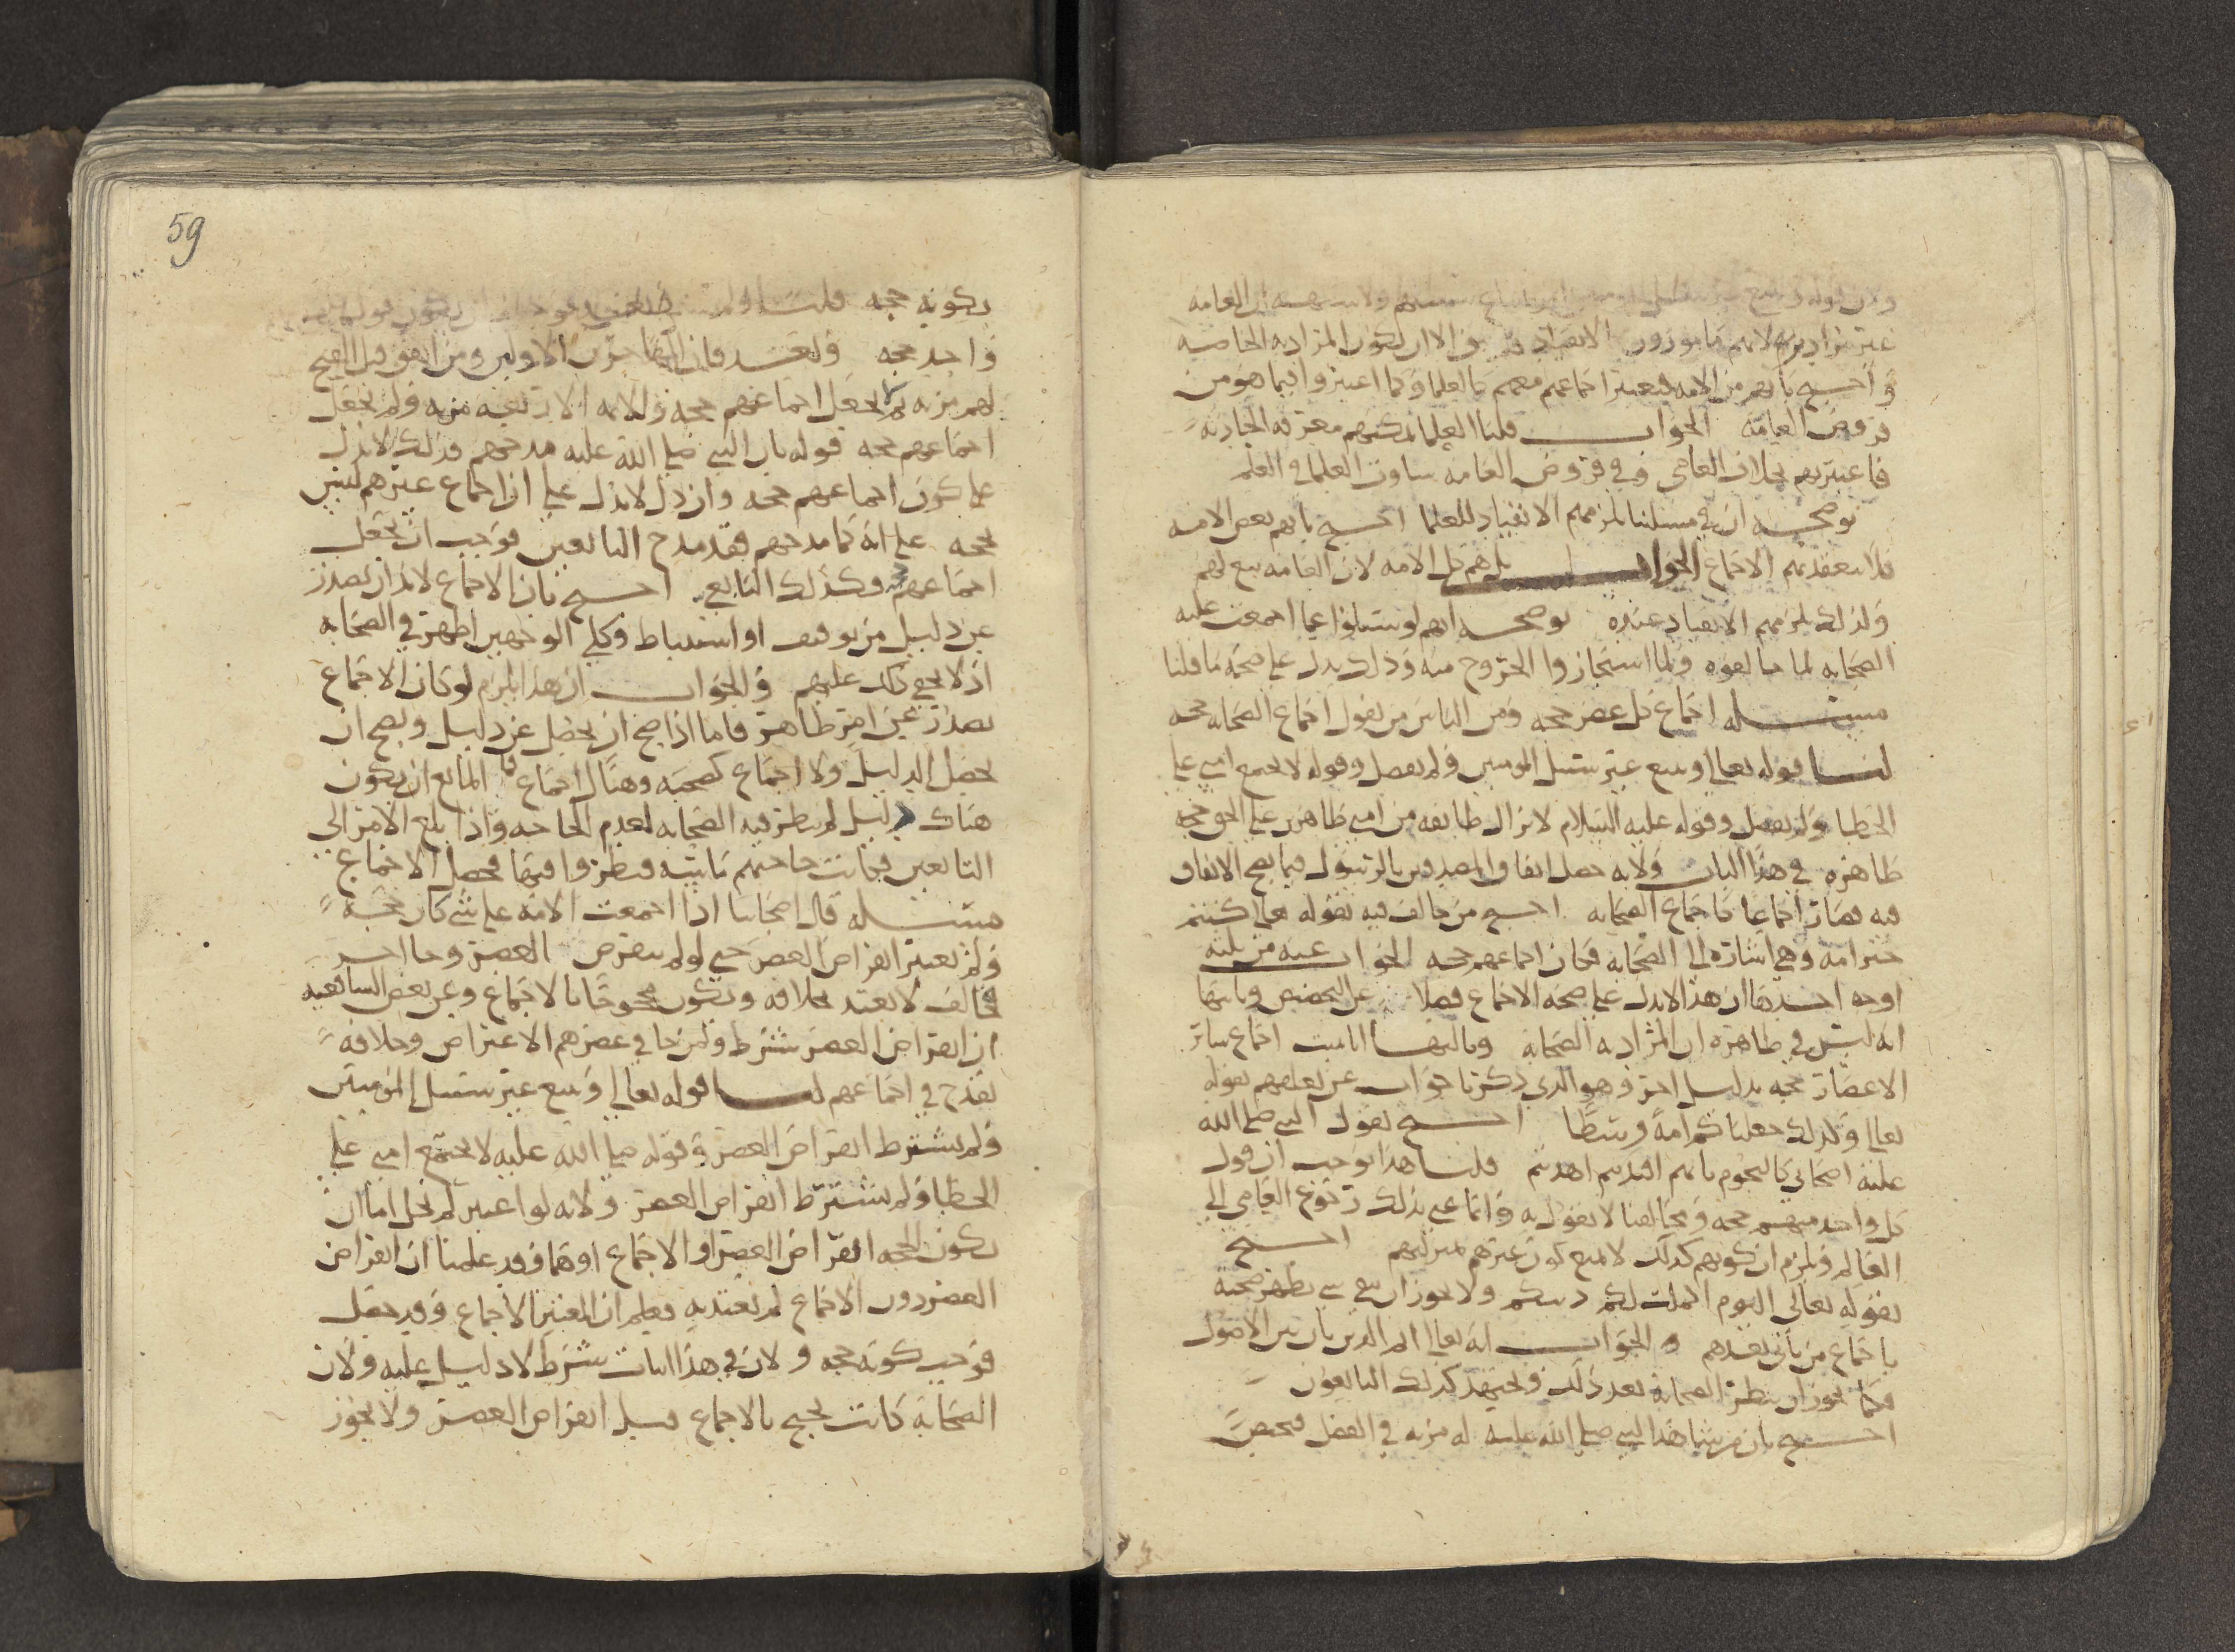 غير مرادين لانهم مامورون الانقياد الا ان يكون المراد به الخاصه
و احتج بانهم من الامه فيعتبر اجماعهم معهم كالعلما وكما اعتبروا فيما هو من
فروض العامه الجواب قلنا العلما يمكنهم معرفه الحادثه
فاعتبر بهم بخلاف العامى وفي فروض العامه ساوت العلما في العلم
توضحه ان في مسئلتنا يلزمهم الانقياد للعلما احتج بانهم بعض الامه
فلا ينعقد بهم الاجماع الجواب بل هم كل الامه لان العامه تبع لهم
ولذلك يلزمهم الانقياد عنده توضحه انهم لو سئلوا عما اجمعت عليه
الصحابه لما خالفوه ولما استجازوا الخروج منه وذلك يدل على صحه ما قلنا
مسئله اجماع كل عصر حجه ومن الناس من يقول اجماع الصحابه حجه
لنا قوله تعالى ويتبع غير سبيل المومنين ولم يفصل وقوله لا تجتمع امتي على
الخطا ولم يفصل وقوله عليه السلام لا تزال طائفه من امتي ظاهرين على الحق حجه
ظاهره في هذا الباب ولانه حصل اتفاق المصدقين بالرسول فيما يصح الاتفاق
فيه فصار اجماعا كاجماع الصحابه احتج من خالف فيه بقوله تعالى كنتم
خير امه وهي اشاره الى الصحابه فكان اجماعهم حجه الجواب عنه من ثلثه
اوجه احدها ان هذا الايدل على صحه الاجماع فضلا عن التخصيص وثانيها
انه ليس في ظاهره ان المراد به الصحابه وثالثها انا نثبت اجماع سائر
الاعصار حجه بدليل اخر وهو الذي ذكرنا جواب عن تعلقهم بقوله
تعالى وكذلك جعلناكم امة وسطا احتج بقول النبي صلى الله
عليه اصحابي كالنجوم بايهم اقتديتم اهتديتم قلنا هذا يوجب ان قول
كل واحد منهم حجه ومخالفنا لا يقول به وانما عنى بذلك رجوع العامي الى
العالم ولم يلزم ان كونهم كذلك لا يمنع كون غيرهم بمنزلتهم احتج
بقوله تعالى اليوم اكملت لكم دينكم ولا يجوز ان يبقى شى يظهر صحته
باجماع من ياتي بعدهم و الجواب انه تعالى اكمل الدين بان بين الاصول
فكما يجوز ان ينظر الصحابه بعد ذلك ويجتهد كذلك التابعون
احتج بان من شاهد النبي صلى الله عليه له مزيه في الفضل فيختص
بكونه حجه قلنا
واحد حجه وبعد فان ايضا الاولين ومن انفق قبل الفتح
لهم مزيه ولم يجعل اجماعهم حجه ولانه الاربعه مزيه ولم يجعل
اجماعهم حجه قوله بان النبي صلى الله عليه مدحهم فذلك لا يدل
على كون اجماعهم حجه وان دل لا يدل على ان اجماع غيرهم ليس
بحجه على انه كما مدحهم فقد مدح التابعين فوجب ان يجعل
اجماعهم وكذلك التابعي احتج بان الاجماع لا بد ان يصدر
عن دليل من توقيف او استنباط وكلى الوجهين اظهر في الصحابه
اذ لا يخفى ذلك عليهم و الجواب ان هذا يلزم لو كان الاجماع
يصدر عن امر ظاهر فاما اذا صح ان يحصل عن دليل ويصح ان
يحصل الدليل ولا اجماع كصحبه وهناك اجماع فما المانع ان يكون
هناك دليل لم ينظر فيه الصحابه لعدم الحاجه واذا بلغ الامر الى
التابعين فكانت حاجتهم ماسه فنظروا فيها فحصل الاجماع
مسئله قال اصحابنا اذا اجمعت الامه على شى كان حجه
ولم يعتبر انقراض العصر حتى لو لم ينقرض العصر وجا احد
فخالف لا يعتد بخلافه ويكون محجوجا بالاجماع وعن بعض الشافعيه
ان انقراض العصر شرط ومن جا في عصرهم الاعتراض وخلافه
يقدح في اجماعهم لنا قوله تعالى ويتبع غير سبيل المومنين
ولم يشترط انقراض العصر وقوله صلى الله عليه لا تجتمع امتي على
الخطا ولم يشترط انقراض العصر ولانه لو اعتبر لم يخل اما ان
يكون الحجه انقراض العصر او الاجماع او هما وقد علمنا ان انقراض
العصر دون الاجماع لم يعتد به فعلم ان المعتبر الاجماع وقد حصل
فوجب كونه حجه ولان في هذا اثبات شرط لا دليل عليه ولان
الصحابه كانت تحتج بالاجماع قبل انقراض العصر ولا يجوز
59